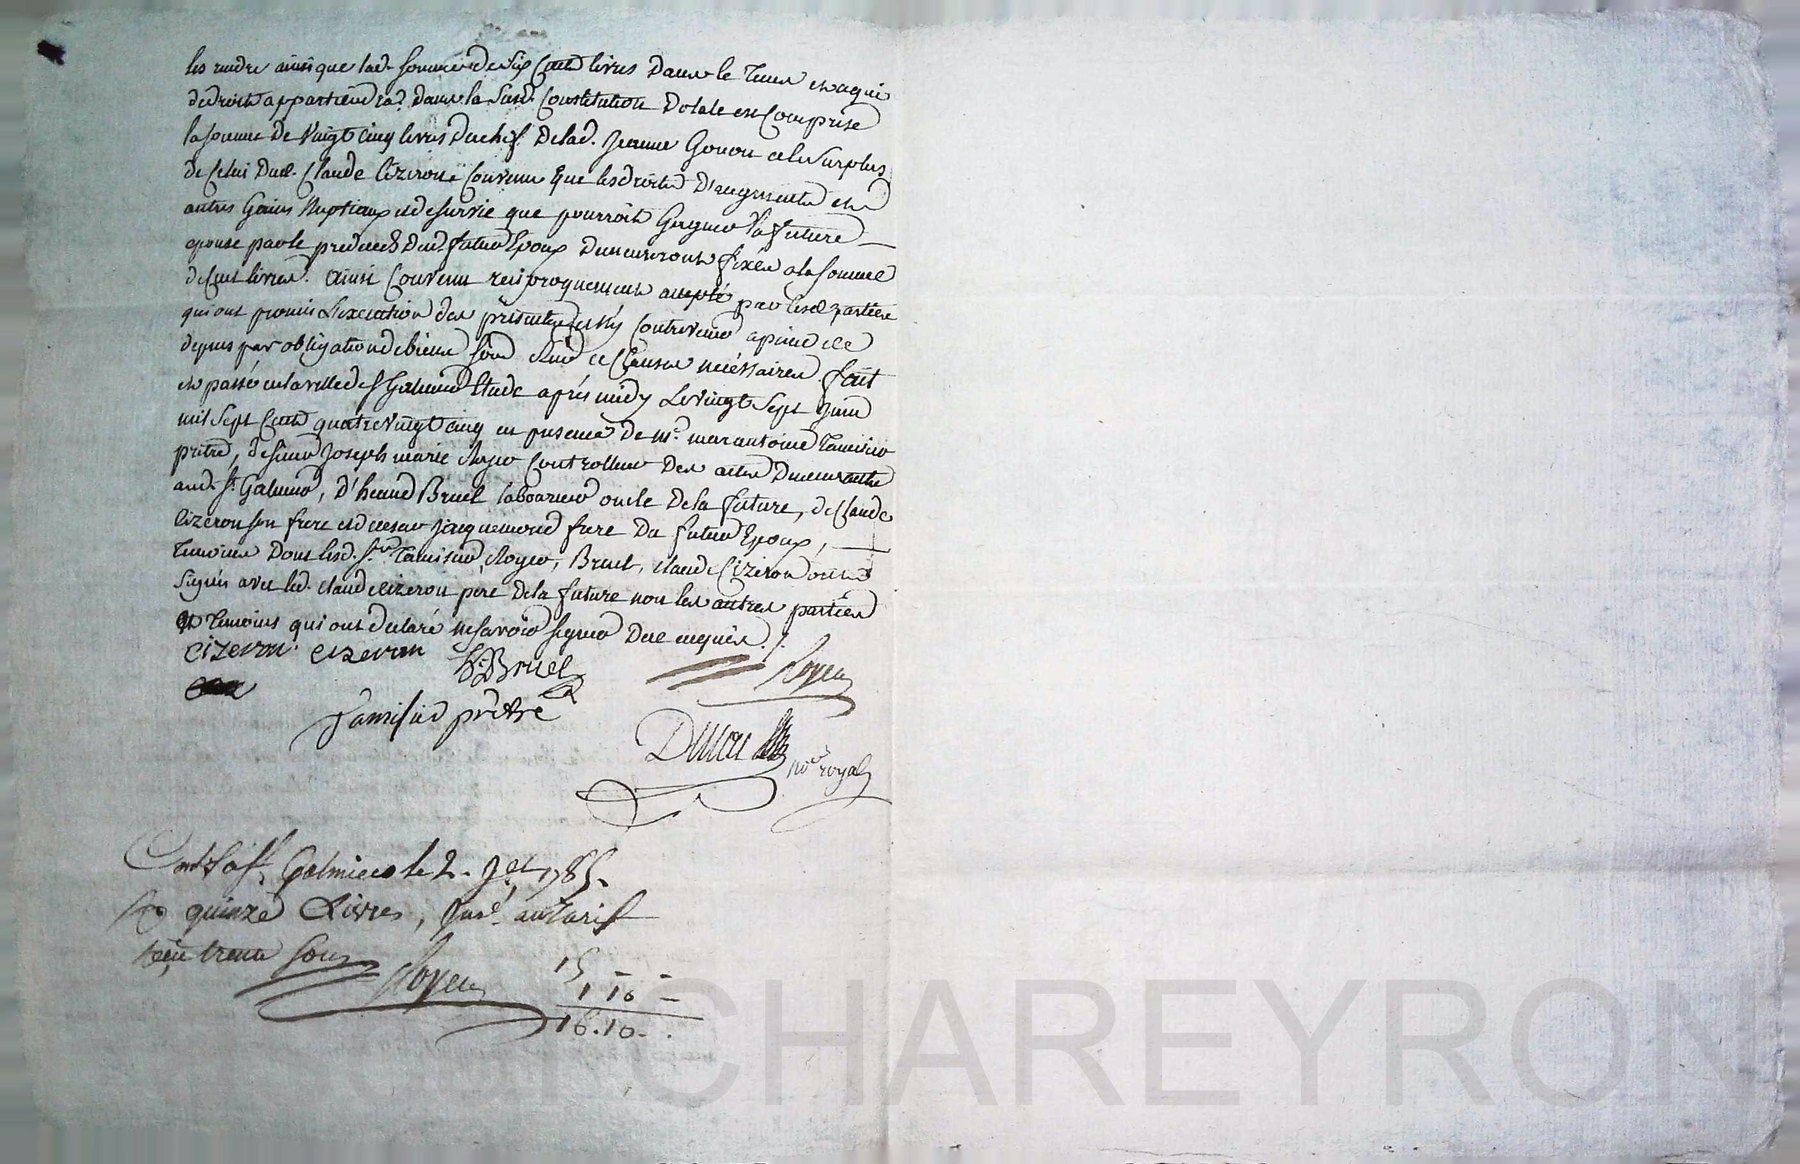 les rendre ainsi que lad. somme de Six Cent livres Dans le tems et a qui
de droit appartiendra. dans la Susd. Constitution Dotale est Comprise
la somme de vingt cinq livres du chef de lad. Jeanne Gonon et le surplus
de Celui dud. Claude Cizeron Convenu que les droits D'augments et
autres Gains Nuptiaux et de survie que pourroit Gagner la future
epouse par le predeces dud. futur Epoux Demeureront fixés a la somme
de Cent livres. ainsi Convenu reciproquement accepté par lesd. parties
qui ont promis L'execution des présentes et n'y Contrevenir a peine de
depens par obligation de biens soum. et Clauses nécéssaires fait
et passé en la ville de St Galmier Etude après midy Le vingt Sept Juin
mil Sept Cent quatre Vingt Cinq en presence de mre. marc antoine Tamisier
prêtre, de sieur Joseph marie Royer Controlleur Des actes Demeurants
aud. St. Galmier, d' Bruel laboureur oncle De la future, de Claude
Cizeron son frere et de Jacquemond frere Du futur Epoux,
Temoins Dont lesd. Srs. Tamisier, Royer, Bruel, Claude Cizeron ont
signés avec led. Claude Cizeron pere De la future non les autres parties
et Temoins qui ont declaré ne savoir signer De ce enquis./.
Cizeron. Cizeron
h. Bruel
Royer
Tamisier prêtre
nore. royal
Contr. a St. Galmier le 2. Jet 1785.
R. quinze Livres, au Tarif
Reçu trente sous
Royer
15 - -
1 10 -
16. 10 -.
CHAREYRON